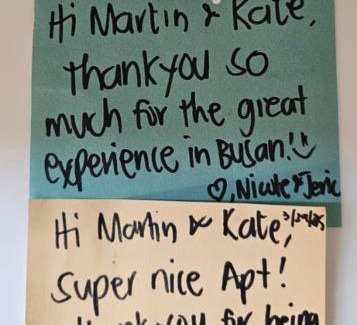 Hi Martin & Kate,
thankyou so
much for the great
experience in Busan! :)
♡, Nicole & Jeric
Hi Martin & Kate,
Super nice Apt!
thank you for being